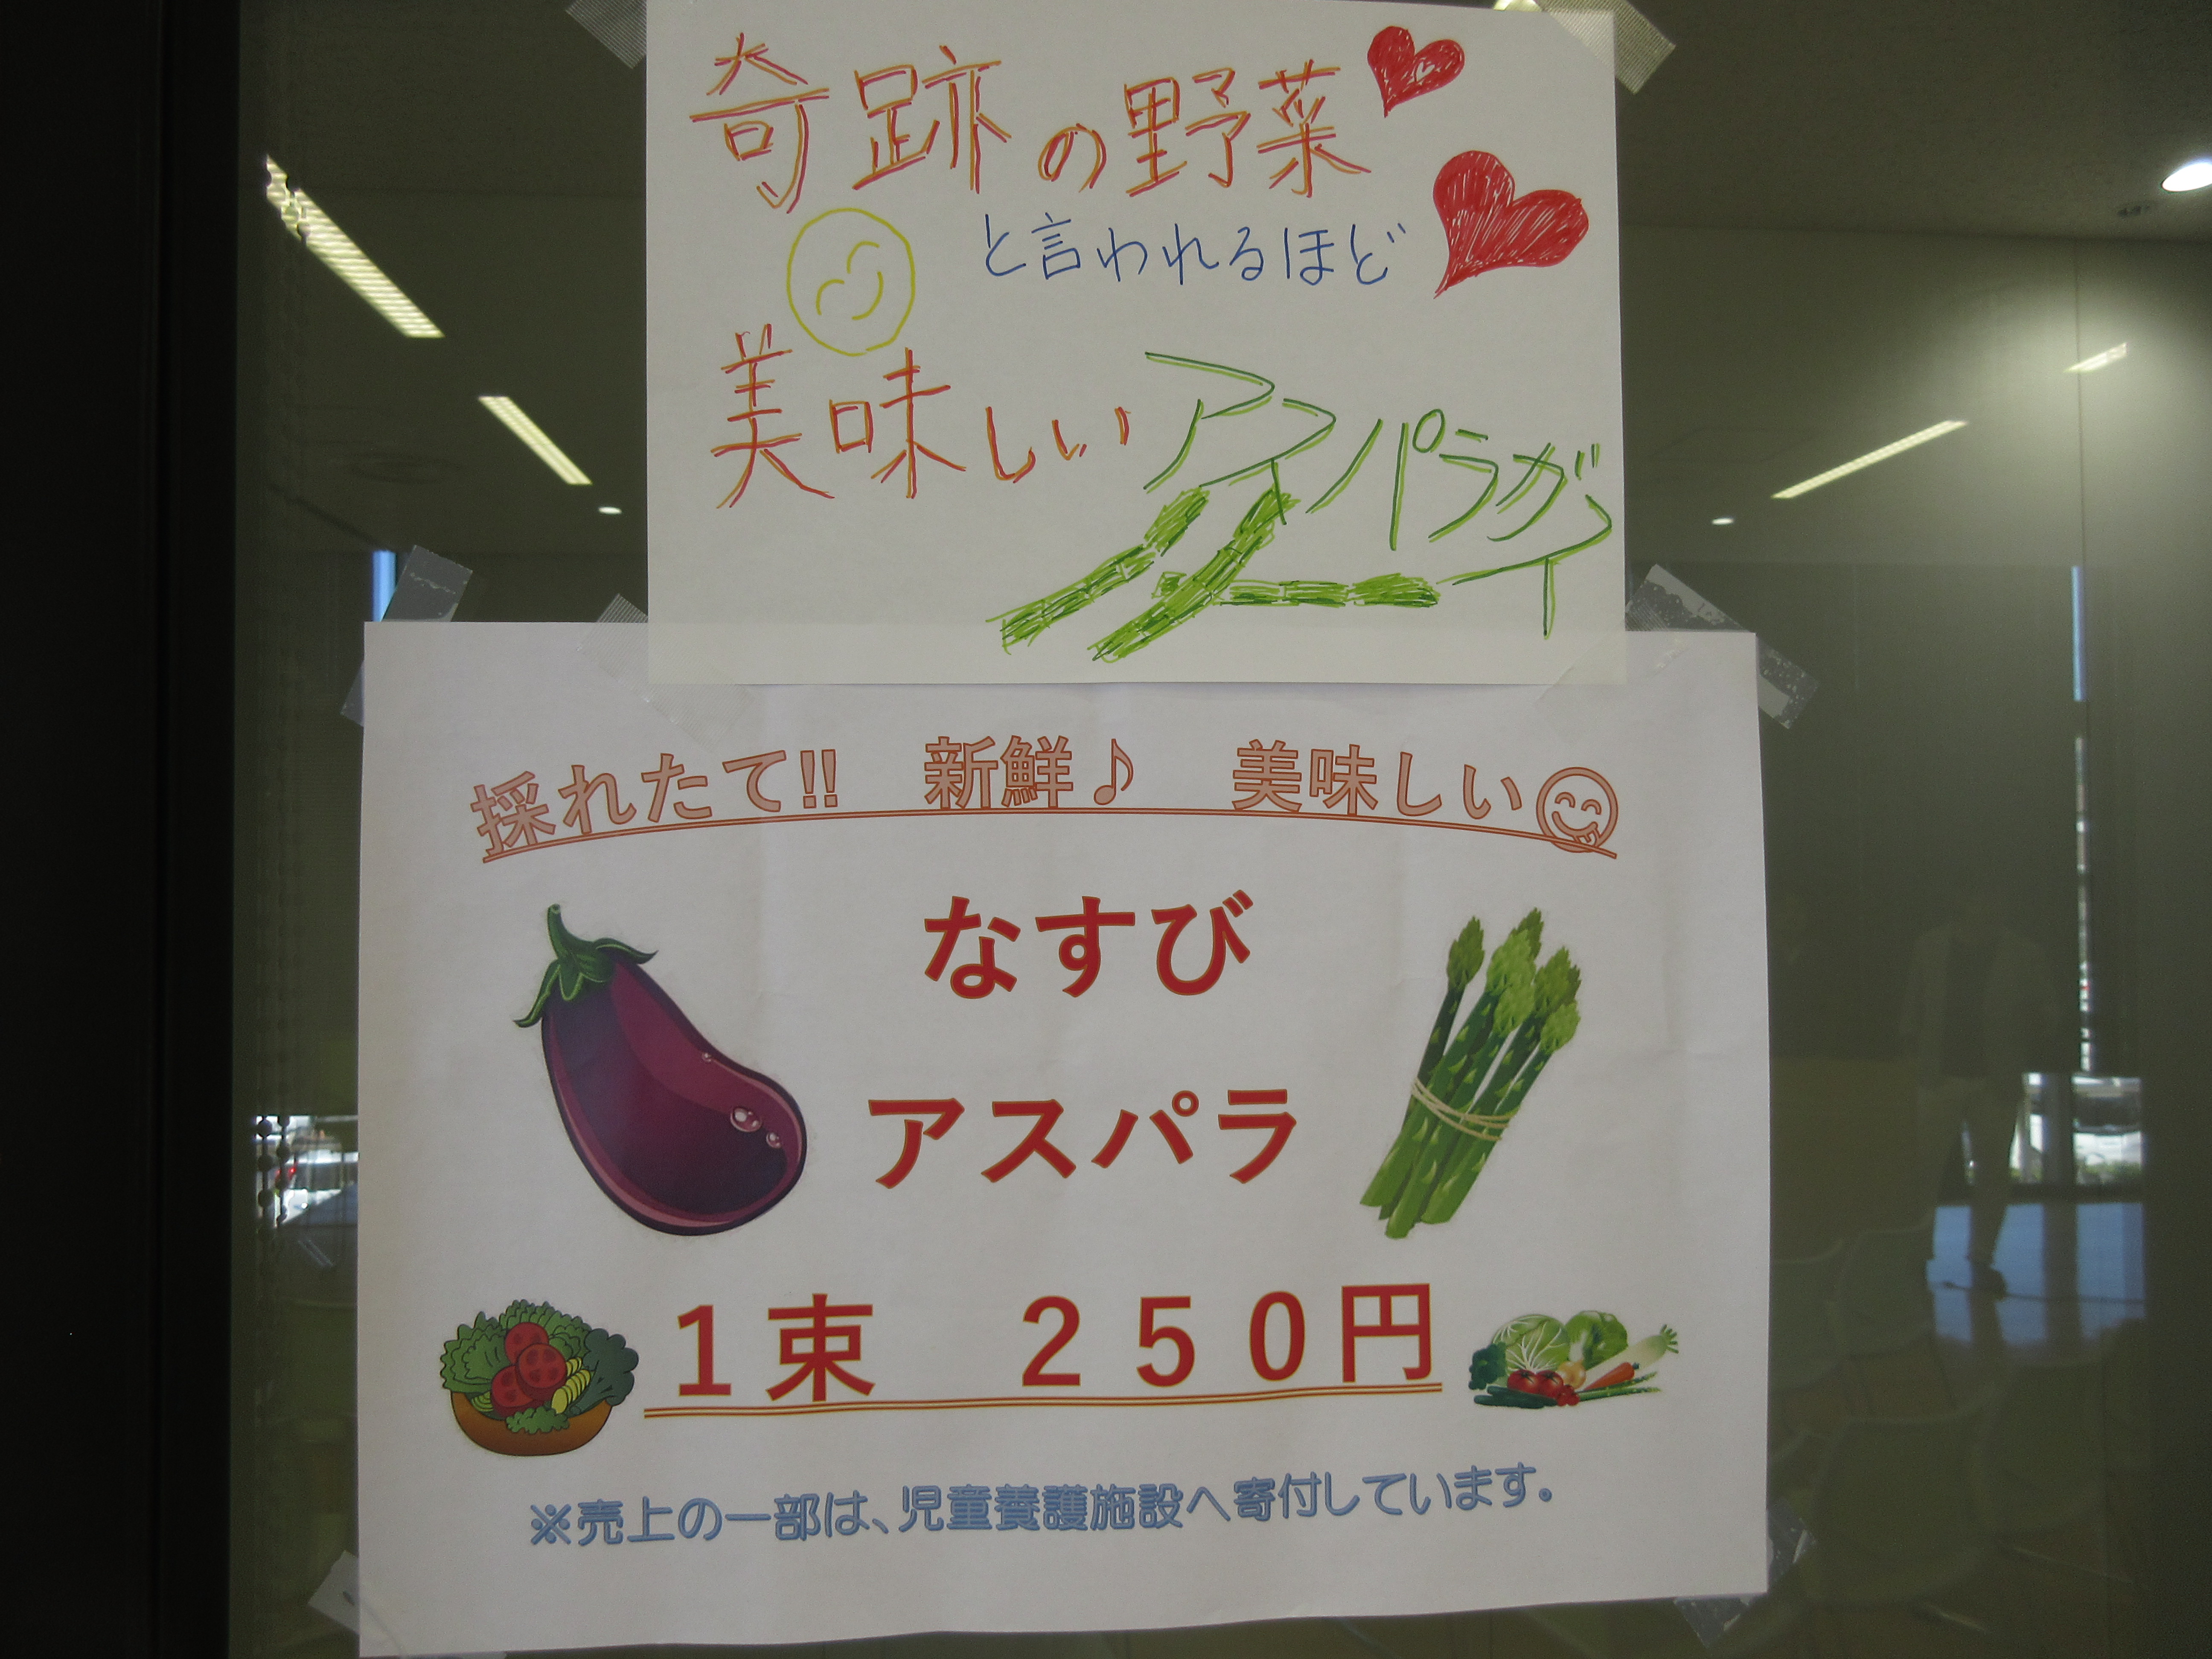 奇跡の野菜
と言われるほど
美味しいアスパラガス
採れたて!!　新鮮♪　美味しい😋
なすび
アスパラ
1束　250円
※売上の一部は、児童養護施設へ寄付しています。